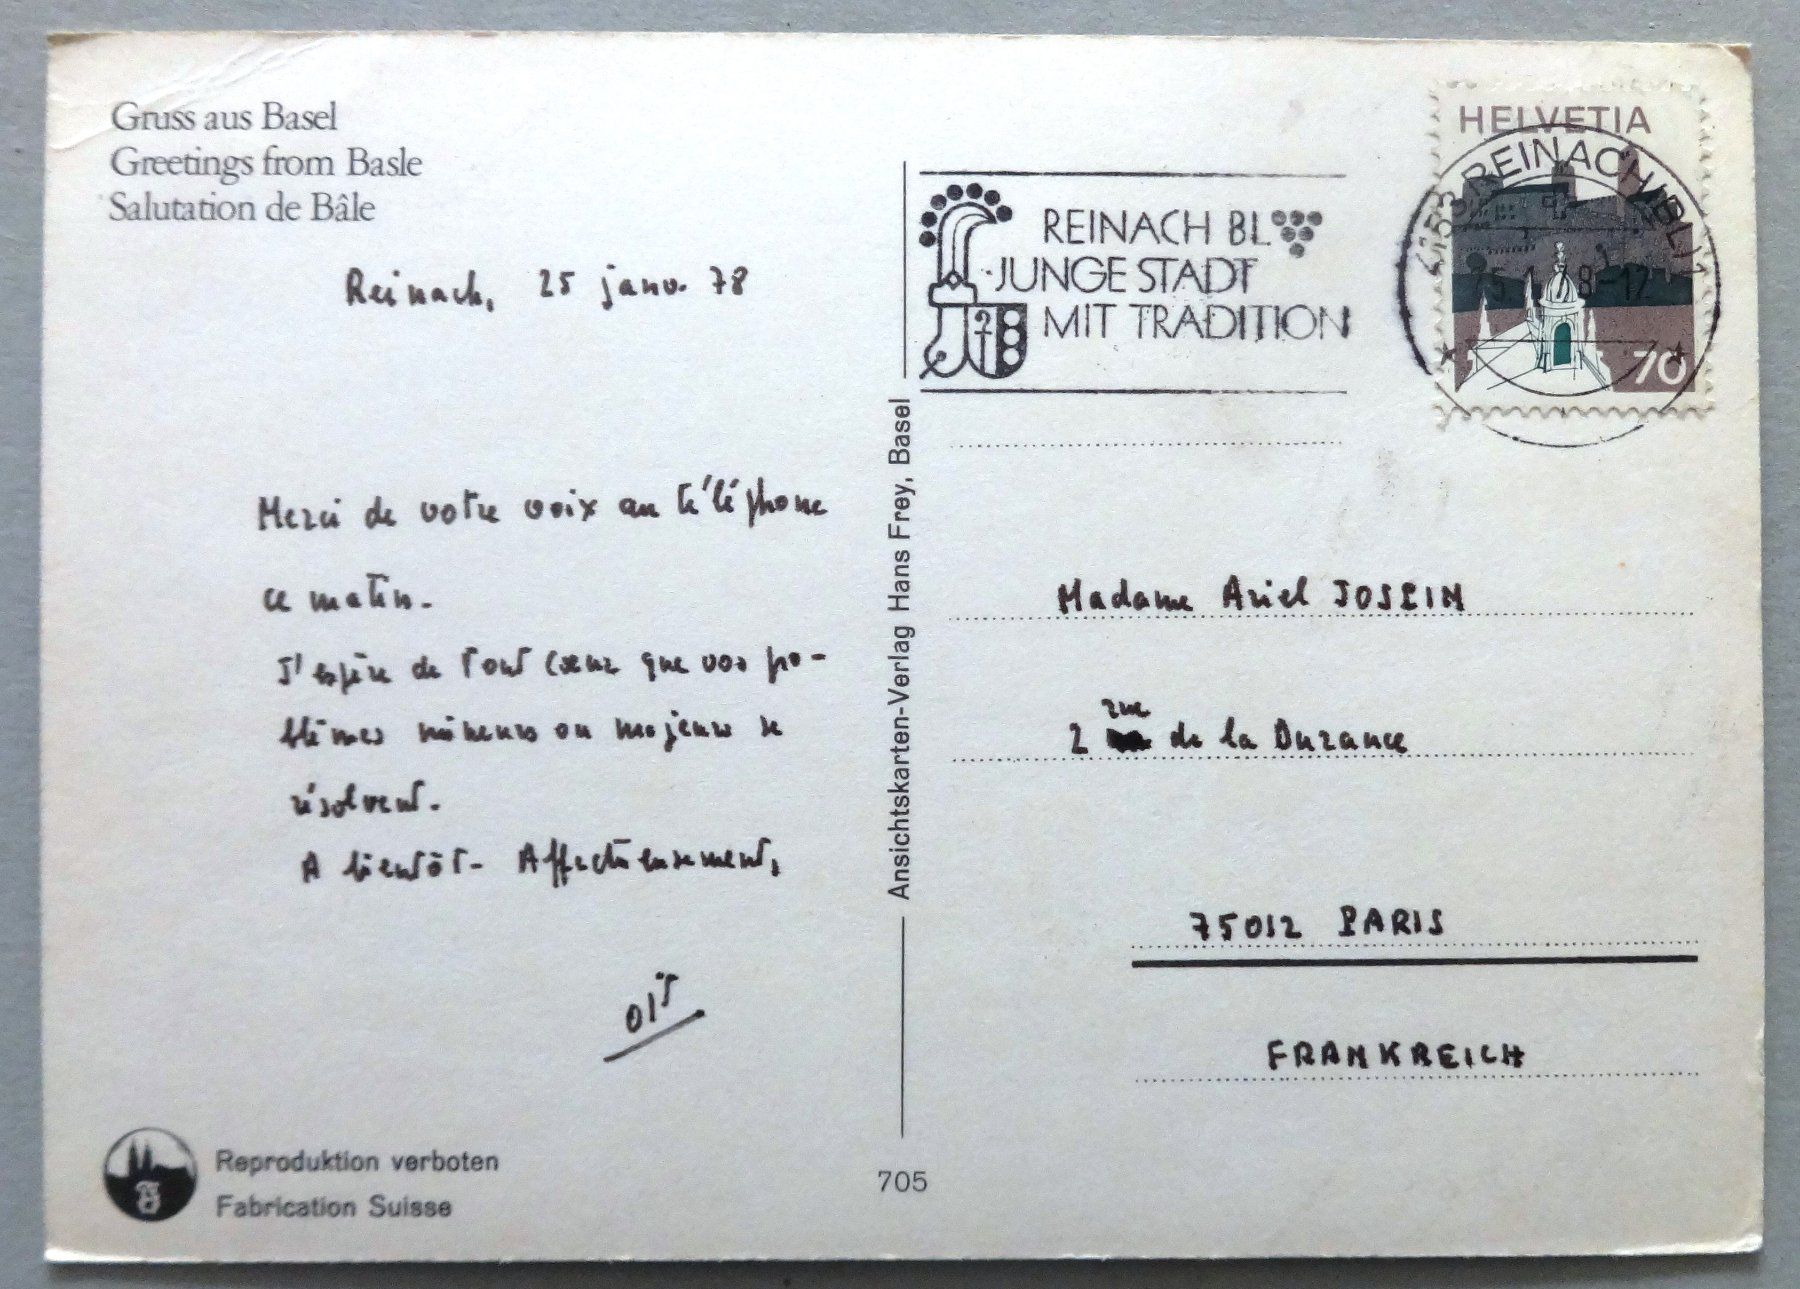 Gruss aus Basel
Greetings from Basle
Salutation de Bâle
Reinach, 25 janv. 78
Merci de votre voix au téléphone
ce matin.
J'espère de tout cœur que vos pro-
blèmes mineurs ou majeurs se
résolvent.
A bientôt - Affectueusement,
Reproduktion verboten
Fabrication Suisse
Ansichtskarten-Verlag Hans Frey, Basel
705
REINACH BL
JUNGE STADT
MIT TRADITION
HELVETIA
4153 REINACH (BL) 1
25.1.78-12
70
Madame Ariel JOSPIN
2 rue de la Durance
75012 PARIS
FRANKREICH